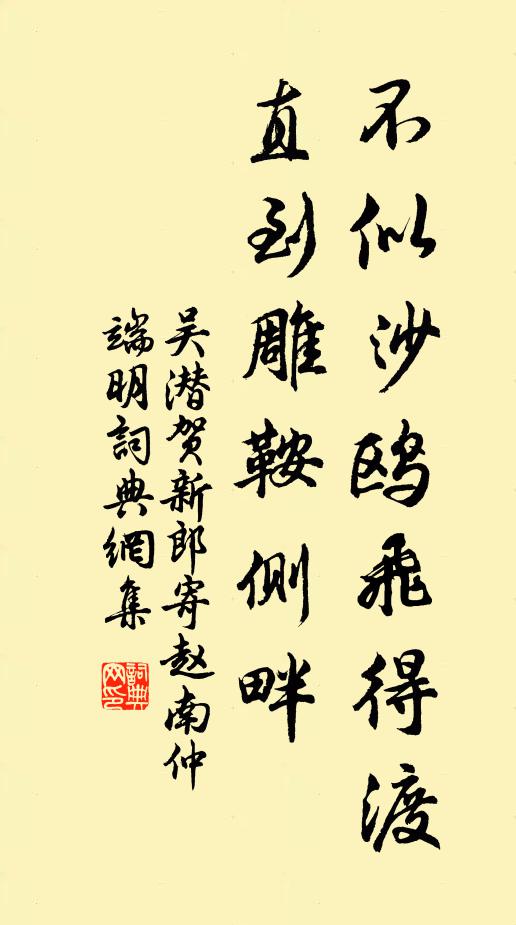 不似沙鸥飛得渡
直到雕鞍側畔
吴潜贺新郎寄赵南仲
端明詞典網集
詞典網印